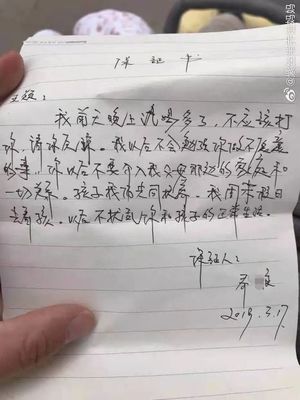 保证书
我前天晚上酒喝多了，不应该打
你，请你原谅。我以后不会勉强你做不愿意
的事，你以后不要介入我父母那边的家庭和
一切关系。孩子我俩共同抚养。我周末祖日
去看孩子。以后不扰乱你和孩子的正常生活。
保证人：
2019.3.17